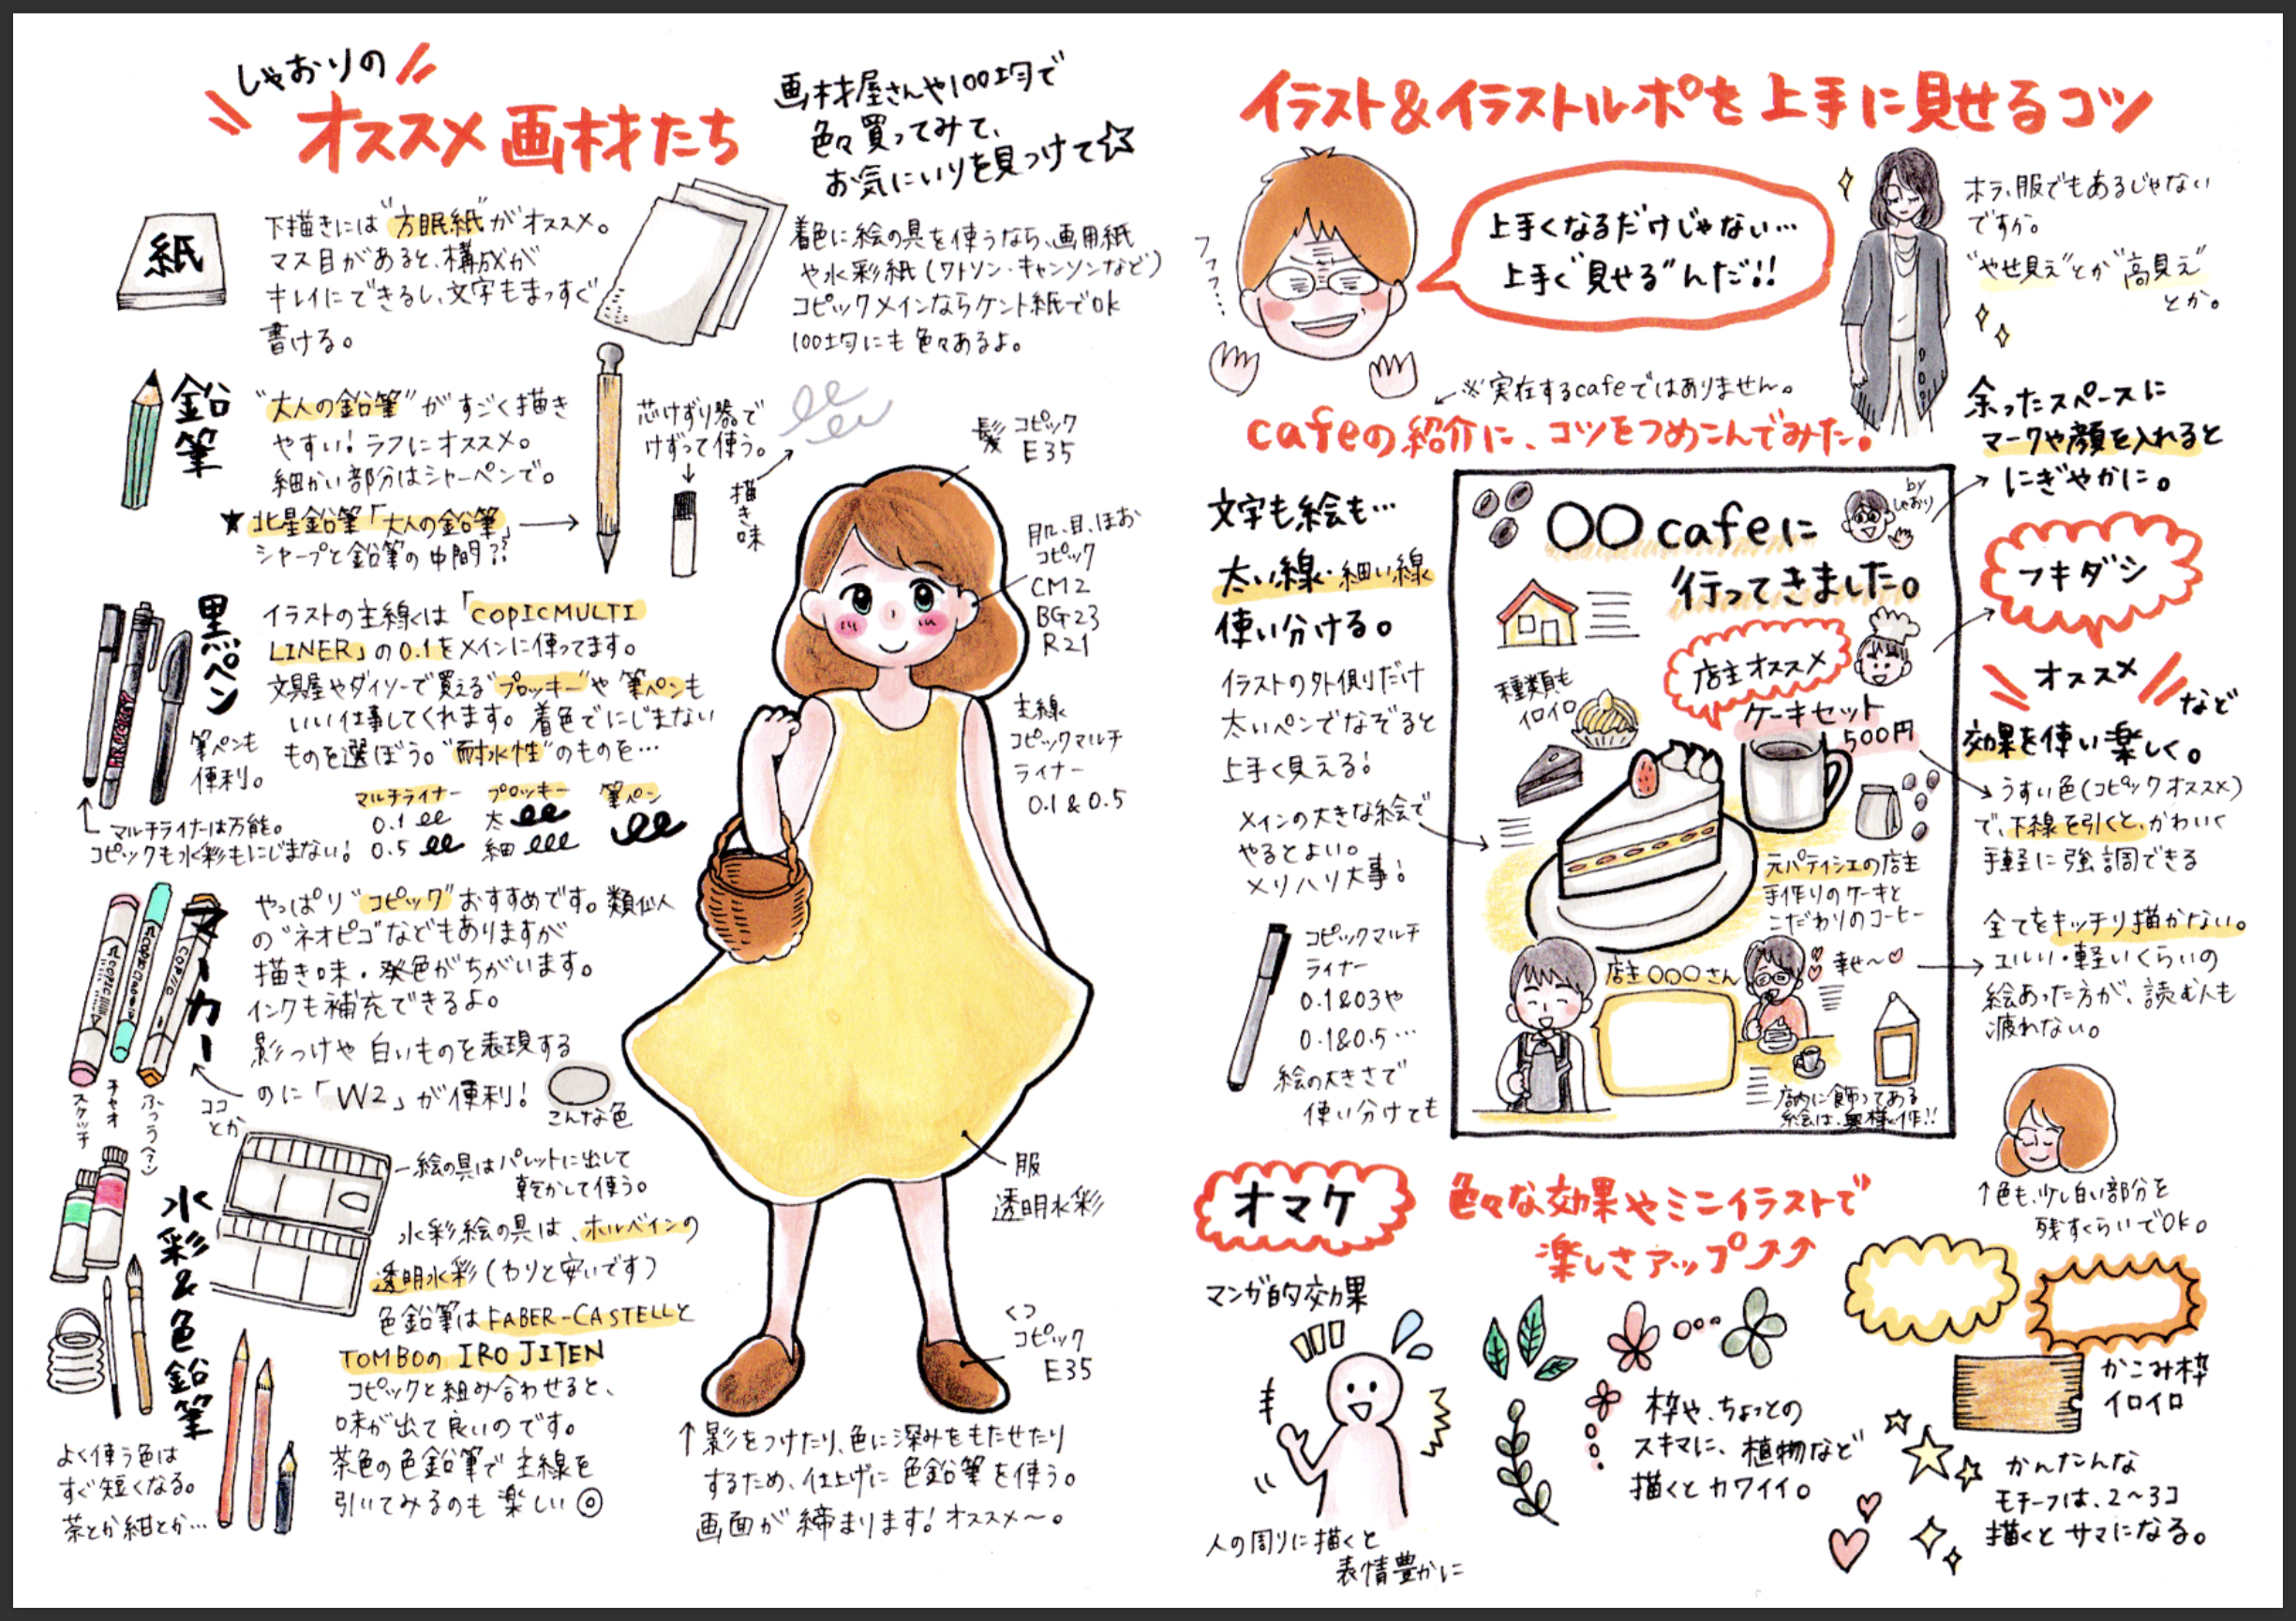 しゃおりの
オススメ画材たち
画材屋さんや100均で
色々買ってみて、
お気にいりを見つけて☆
紙
下描きには"方眼紙"がオススメ。
マス目があると、構成が
キレイにできるし、文字もまっすぐ
書ける。
着色に絵の具を使うなら、画用紙
や水彩紙(ワトソン・キャンソンなど)
コピックメインならケント紙でOK
100均にも色々あるよ。
鉛筆
"大人の鉛筆"がすごく描き
やすい!ラフにオススメ。
細かい部分はシャーペンで。
★北星鉛筆「大人の鉛筆」→
シャープと鉛筆の中間??
芯けずり器で
けずって使う。
描き味
黒ペン
イラストの主線は「COPICMULTI
LINER」の0.1をメインに使ってます。
文具屋やダイソーで買える"プロッキー"や筆ペンも
いい仕事してくれます。着色でにじまない
ものを選ぼう。"耐水性"のものを…
筆ペンも
便利。
マルチライナー プロッキー 筆ペン
0.1 太
0.5 細
マルチライナーは万能。
コピックも水彩もにじまない!
PROCKY
マーカー
やっぱり"コピック"おすすめです。類似人
の"ネオピコ"などもありますが
描き味・発色がちがいます。
インクも補充できるよ。
影つけや白いものを表現する
のに「W2」が便利!
こんな色
ココ
とか
スケッチ
チャオ
ふつう(?)
COPIC
水彩&色鉛筆
絵の具はパレットに出して
乾かして使う。
水彩絵の具は、ホルベインの
透明水彩(わりと安いです)
色鉛筆はFABER-CASTELLと
TOMBOの IRO JITEN
コピックと組み合わせると、
味が出て良いのです。
茶色の色鉛筆で主線を
引いてみるのも楽しい◎
よく使う色は
すぐ短くなる。
茶とか紺とか…
髪 コピック
E35
肌、目、ほお
コピック
CM2
BG23
R21
主線
コピックマルチ
ライナー
0.1&0.5
服
透明水彩
くつ
コピック
E35
↑影をつけたり、色に深みをもたせたり
するため、仕上げに色鉛筆を使う。
画面が締まります!オススメ〜。
イラスト&イラストルポを上手に見せるコツ
フフフ…
上手くなるだけじゃない…
上手く"見せる"んだ!!
ホラ、服でもあるじゃない
ですか。
"やせ見え"とか"高見え"
とか。
※実在するcafeではありません。
cafeの紹介に、コツをつめこんでみた。
文字も絵も…
太い線・細い線
使い分ける。
イラストの外側だけ
太いペンでなぞると
上手く見える!
メインの大きな絵で
やるとよい。
メリハリ大事!
コピックマルチ
ライナー
0.1&03や
0.1&0.5…
絵の大きさで
使い分けても
〇〇cafeに
行ってきました。
by
しゃおり
店主オススメ
ケーキセット
500円
種類も
イロイロ
元パティシエの店主
手作りのケーキと
こだわりのコーヒー
店主〇〇〇さん
幸せ〜♡
店内に飾ってある
絵は、奥様作!!
余ったスペースに
マークや顔を入れると
にぎやかに。
フキダシ
オススメ
など
効果を使い楽しく。
うすい色(コピックオススメ)
で、下線を引くと、かわいく
手軽に強調できる
全てをキッチリ描かない。
ユルい・軽いくらいの
絵あった方が、読む人も
疲れない。
↑色も、少し白い部分を
残すくらいでOK。
オマケ
色々な効果やミニイラストで
楽しさアップ⤴⤴
マンガ的効果
人の周りに描くと
表情豊かに
枠や、ちょっとの
スキマに、植物など
描くとカワイイ。
かこみ枠
イロイロ
かんたんな
モチーフは、2〜3コ
描くとサマになる。